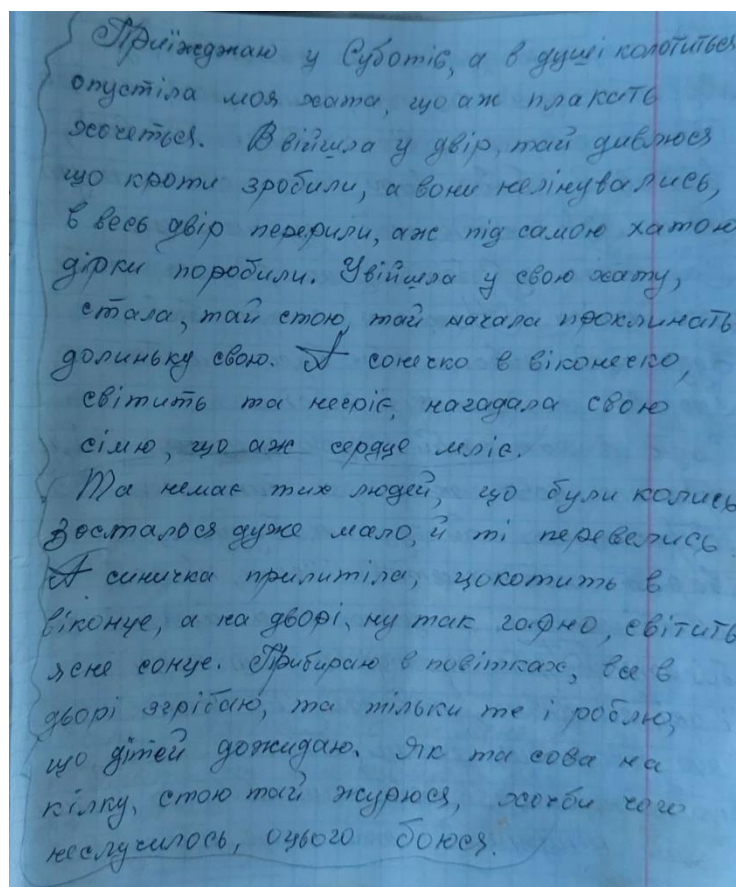 Приїжджаю у Суботів, а в душі колотиться
опустіла моя хата, що аж плакать
хочеться. Ввійшла у двір, тай дивлюся
що кроти зробили, а вони нелінувались,
в весь двір перерили, аж під самою хатою
дірки поробили. Увійшла у свою хату,
стала, тай стою, тай начала проклинать
долиньку свою. А сонечко в віконечко,
світить та негріє, нагадала свою
сімю, що аж сердце мліє.
Та немає тих людей, що були колись
Зосталося дуже мало, й ті перевелись.
А синичка прилитіла, цокотить в
віконце, а на дворі, ну так гарно, світить
ясне сонце. Прибираю в повітках, все в
дворі згрібаю, та тільки те і роблю,
що дітей дожидаю. Як та сова на
кілку, стою тай журюся, хочби чого
неслучилось, оцього боюся.